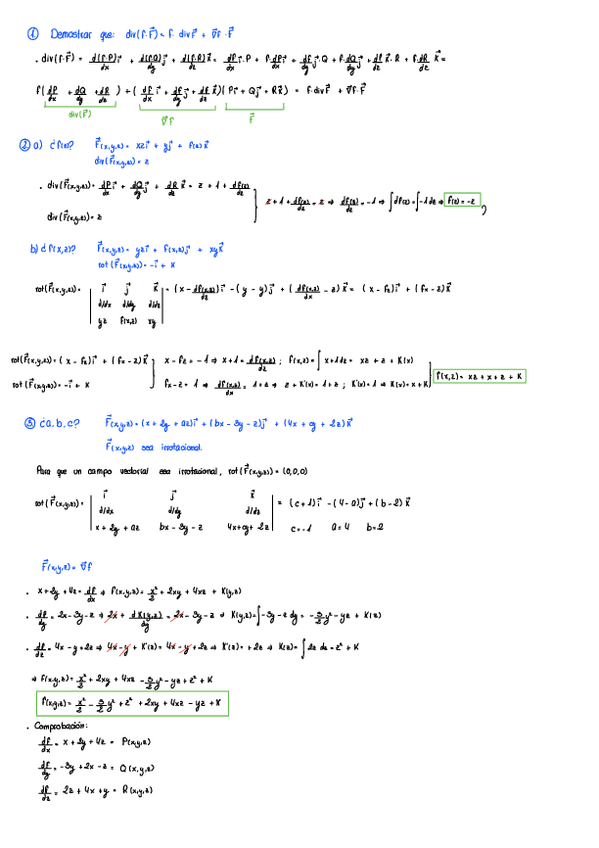 ① Demostrar que: div(f·F⃗) = f·divF⃗ + ∇⃗f·F⃗
· div(f·F⃗) = d(f·P)/dx i⃗ + d(f·Q)/dy j⃗ + d(f·R)/dz k⃗ = df/dx i⃗·P + f·dP/dx i⃗ + df/dy j⃗·Q + f·dQ/dy j⃗ + df/dz k⃗·R + f·dR/dz k⃗ =
f(dP/dx + dQ/dy + dR/dz) + (df/dx i⃗ + df/dy j⃗ + df/dz k⃗)(Pi⃗ + Qj⃗ + Rk⃗) = f·divF⃗ + ∇⃗f·F⃗
div(F⃗) ∇⃗f F⃗
② a) ¿f(z)? F⃗(x,y,z) = xzi⃗ + yj⃗ + f(z)k⃗
div(F⃗(x,y,z)) = z
· div(F⃗(x,y,z)) = dP/dx i⃗ + dQ/dy j⃗ + dR/dz k⃗ = z + 1 + df(z)/dz
z + 1 + df(z)/dz = z ⇒ df(z)/dz = -1 ⇒ ∫df(z) = ∫-1dz ⇒ f(z) = -z
div(F⃗(x,y,z)) = z
b) ¿f(x,z)? F⃗(x,y,z) = yzi⃗ + f(x,z)j⃗ + xyk⃗
rot(F⃗(x,y,z)) = -i⃗ + k
rot(F⃗(x,y,z)) = | i⃗ j⃗ k⃗ | = (x - df(x,z)/dz)i⃗ - (y - y)j⃗ + (df(x,z)/dx - z)k⃗ = (x - fz)i⃗ + (fx - z)k⃗
d/dx d/dy d/dz
yz f(x,z) xy
rot(F⃗(x,y,z)) = (x - fz)i⃗ + (fx - z)k⃗ x - fz = -1 ⇒ x + 1 = df(x,z)/dz ; f(x,z) = ∫x + 1dz = xz + z + K(x)
rot(F⃗(x,y,z)) = -i⃗ + k fx - z = 1 ⇒ df(x,z)/dx = 1 + z ⇒ z + K'(x) = 1 + z ; K'(x) = 1 ⇒ K(x) = x + K
f(x,z) = xz + x + z + K
③ ¿a,b,c? F⃗(x,y,z) = (x + 2y + az)i⃗ + (bx - 3y - z)j⃗ + (4x + cy + 2z)k⃗
F⃗(x,y,z) sea irrotacional.
Para que un campo vectorial sea irrotacional, rot(F⃗(x,y,z)) = (0,0,0)
rot(F⃗(x,y,z)) = | i⃗ j⃗ k⃗ | = (c + 1)i⃗ - (4 - a)j⃗ + (b - 2)k⃗
d/dx d/dy d/dz
x + 2y + az bx - 3y - z 4x + cy + 2z c = -1 a = 4 b = 2
F⃗(x,y,z) = ∇⃗f
· x + 2y + 4z = df/dx ⇒ f(x,y,z) = x²/2 + 2xy + 4xz + K(y,z)
· df/dy = 2x - 3y - z ⇒ 2x + dK(y,z)/dy = 2x - 3y - z ⇒ K(y,z) = ∫-3y - z dy = -3/2 y² - yz + K(z)
· df/dz = 4x - y + 2z ⇒ 4x - y + K'(z) = 4x - y + 2z ⇒ K'(z) = +2z ⇒ K(z) = ∫2z dz = z² + K
⇒ f(x,y,z) = x²/2 + 2xy + 4xz - 3/2 y² - yz + z² + K
f(x,y,z) = x²/2 - 3/2 y² + z² + 2xy + 4xz - yz + K
· Comprobación:
df/dx = x + 2y + 4z = P(x,y,z)
df/dy = -3y + 2x - z = Q(x,y,z)
df/dz = 2z + 4x + y = R(x,y,z)